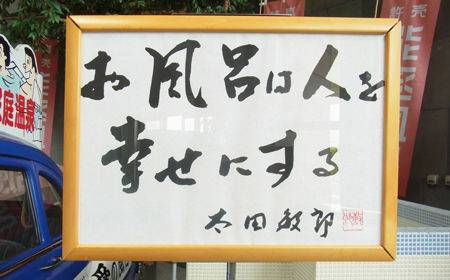 お風呂は人を
幸せにする
太田敏郎
庭温泉